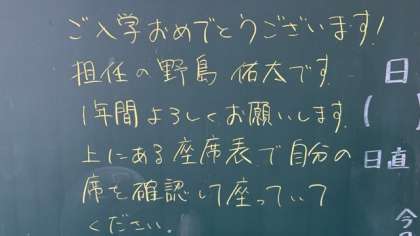 ご入学おめでとうございます!
担任の野島 佑太です
1年間よろしくお願いします
上にある座席表で自分の
席を確認して座っていて
ください。
日
(
日直
今